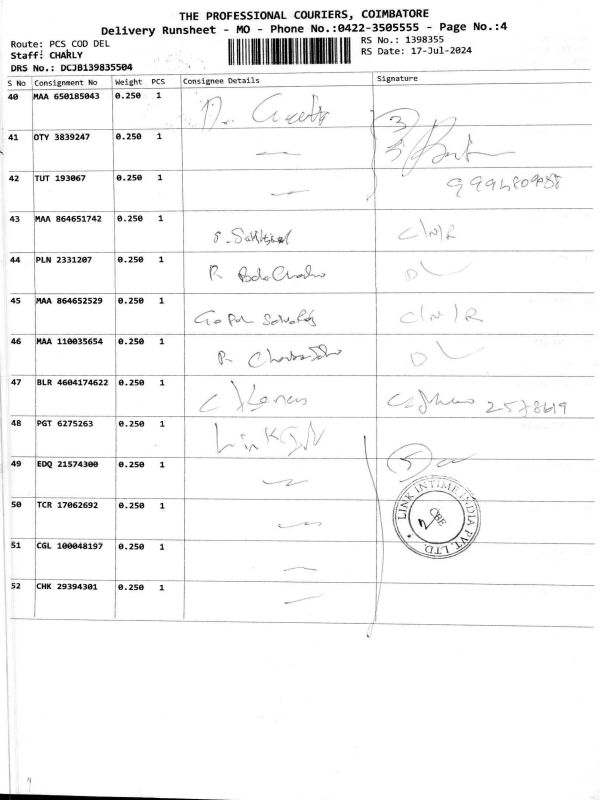 THE PROFESSIONAL COURIERS, COIMBATORE
Delivery Runsheet - MO - Phone No.:0422-3505555 - Page No.:4
Route: PCS COD DEL
Staff: CHARLY
DRS No.: DCJB139835504
RS No.: 1398355
RS Date: 17-Jul-2024
S No Consignment No Weight PCS Consignee Details Signature
40 MAA 650185043 0.250 1
41 OTY 3839247 0.250 1
42 TUT 193067 0.250 1
43 MAA 864651742 0.250 1 C/N/R
44 PLN 2331207 0.250 1 R D L
45 MAA 864652529 0.250 1 C/N/R
46 MAA 110035654 0.250 1 R D L
47 BLR 4604174622 0.250 1
48 PGT 6275263 0.250 1
49 EDQ 21574300 0.250 1 5
50 TCR 17062692 0.250 1
LINK INTIME INDIA PVT. LTD.
CBE
51 CGL 100048197 0.250 1
52 CHK 29394301 0.250 1